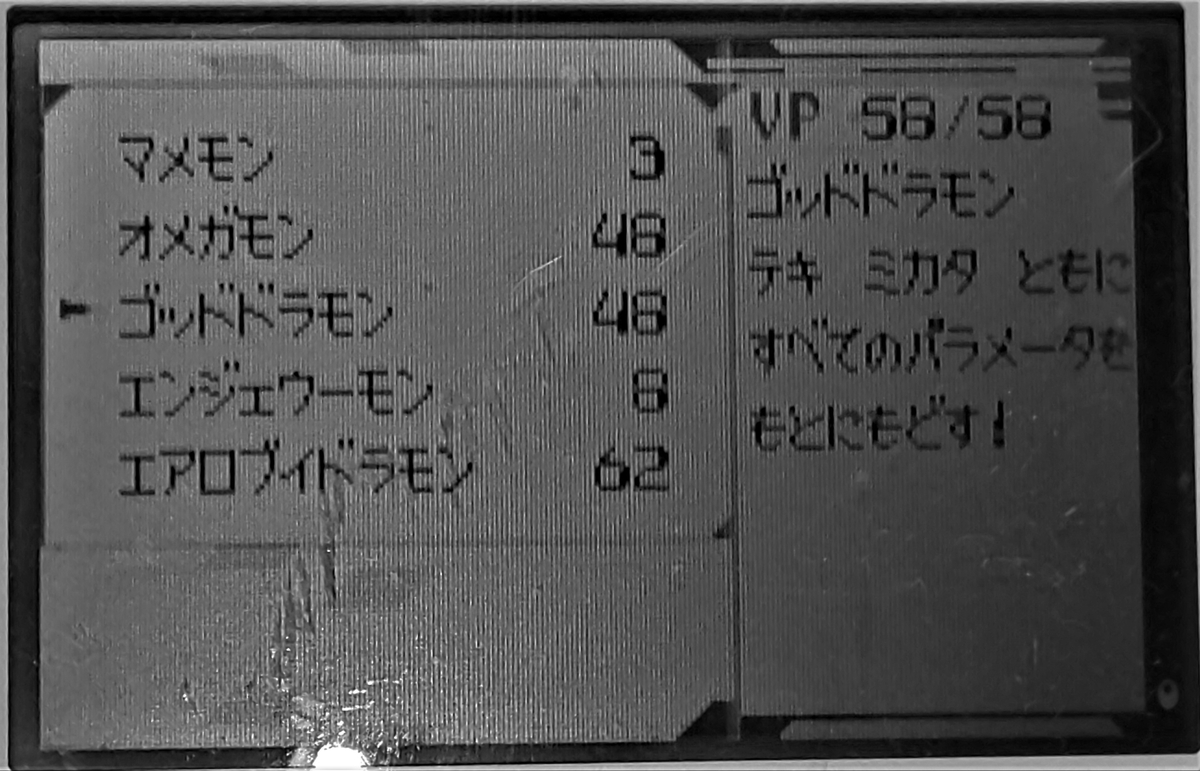 マメモン 3
オメガモン 48
ゴッドドラモン 48
エンジェウーモン 8
エアロブイドラモン 62
VP 58/58
ゴッドドラモン
テキ ミカタ ともに
すべてのパラメータを
もとにもどす!